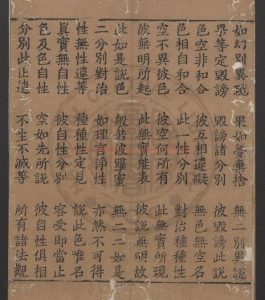 如幻別異說 果如夢棄捨 無二別異說
果等定毀謗 毀謗諸分別 彼毀謗此說
色空非和合 彼互相違礙 無色無空名
色相自和合 此一性分別 對治種種性
空不異彼色 彼空何所有 此無實所現
彼無明所起 此無實能表 彼說無明故
此如是說色 般若波羅蜜 無二二如是
二分別對治 如理言淨性 亦然不可得
性無性違等 種種性定見 說此色唯名
真實無自性 彼自性分別 容受即當止
色及色自性 空如先所說 彼自性俱相
分別此止遣 不生不滅等 所有諸法觀